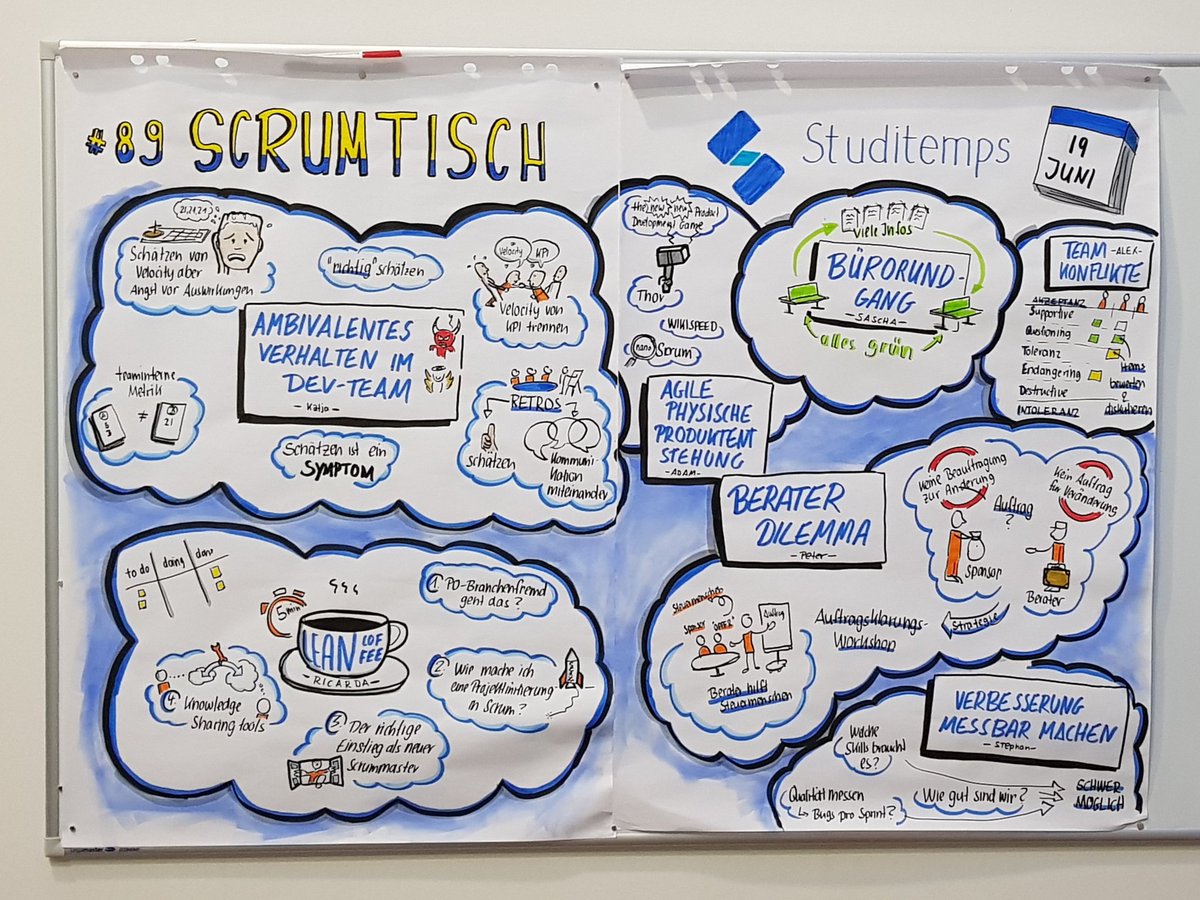 #89 SCRUMTISCH
Studitemps
19
JUNI
21,21,21
Schätzen von
Velocity aber
Angst vor Auswirkungen
"richtig" schätzen
Velocity
KPI
Velocity von
KPI trennen
AMBIVALENTES
VERHALTEN IM
DEV-TEAM
- Katja -
teaminterne
Metrik
≠
21
Schätzen ist ein
SYMPTOM
RETROS
schätzen
Kommuni-
kation
miteinander
the new new Product
Development Game
Thor
WIKISPEED
nano
Scrum
AGILE
PHYSISCHE
PRODUKTENT
STEHUNG
- ADAM -
viele Infos
BÜRORUND-
GANG
- SASCHA -
alles grün
TEAM -ALEX-
KONFLIKTE
AKZEPTANZ
Supportive
Toleranz
Endangering
Destructive
INTOLERANZ
Items
bewerten
&
diskutieren
BERATER
DILEMMA
- Peter -
Keine Beauftragung
zur Änderung
Kein Auftrag
für Veränderung
Auftrag
?
Sponsor
Berater
Strategie
Auftragsklärungs-
Workshop
Steuermenschen
Auftrag
Berater hilft
Steuermenschen
to do doing done
5 min
LEAN COF
FEE
- RICARDA -
1. PO-Branchenfremd
geht das?
2. Wie mache ich
eine Projektlimitierung
in Scrum?
3. Der richtige
Einstieg als neuer
Scrummaster
4. Knowledge
Sharing tools
VERBESSERUNG
MESSBAR MACHEN
- Stephan -
Welche
Skills braucht
es?
Qualität messen
↳ Bugs pro Sprint?
Wie gut sind wir?
SCHWER
MÖGLICH